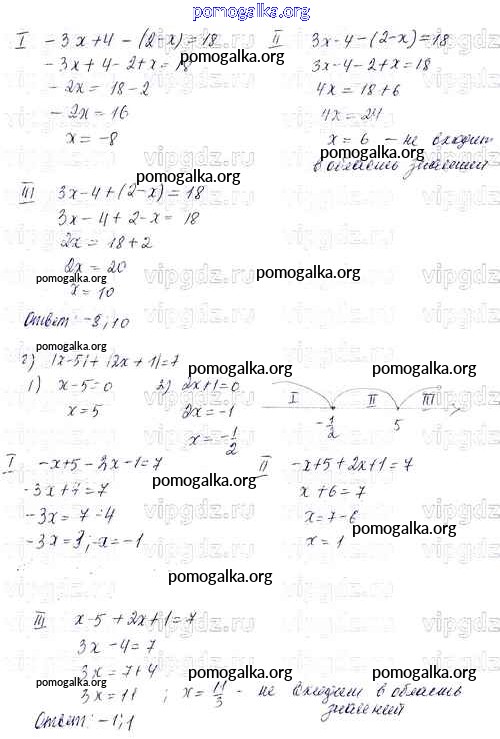 pomogalka.org
I -3x+4-(2-x)=18 II 3x-4-(2-x)=18
-3x+4-2+x=18 3x-4-2+x=18
-2x=18-2 4x=18+6
-2x=16 4x=24
x=-8 x=6 - не входит
в область значений
pomogalka.org
pomogalka.org
III 3x-4+(2-x)=18
3x-4+2-x=18
2x=18+2
2x=20
x=10
pomogalka.org
pomogalka.org
pomogalka.org
Ответ: -8; 10
pomogalka.org
г) |x-5|+|2x+1|=7
pomogalka.org
pomogalka.org
1) x-5=0 2) 2x+1=0 I II III
x=5 2x=-1 -1/2 5
x=-1/2
I -x+5-2x-1=7 II -x+5+2x+1=7
-3x+4=7 x+6=7
pomogalka.org
pomogalka.org
-3x=7-4 x=7-6
-3x=3; x=-1 x=1
pomogalka.org
pomogalka.org
III x-5+2x+1=7
3x-4=7
3x=7+4
pomogalka.org
pomogalka.org
pomogalka.org
3x=11; x=11/3 - не входит в область
значений
Ответ: -1; 1